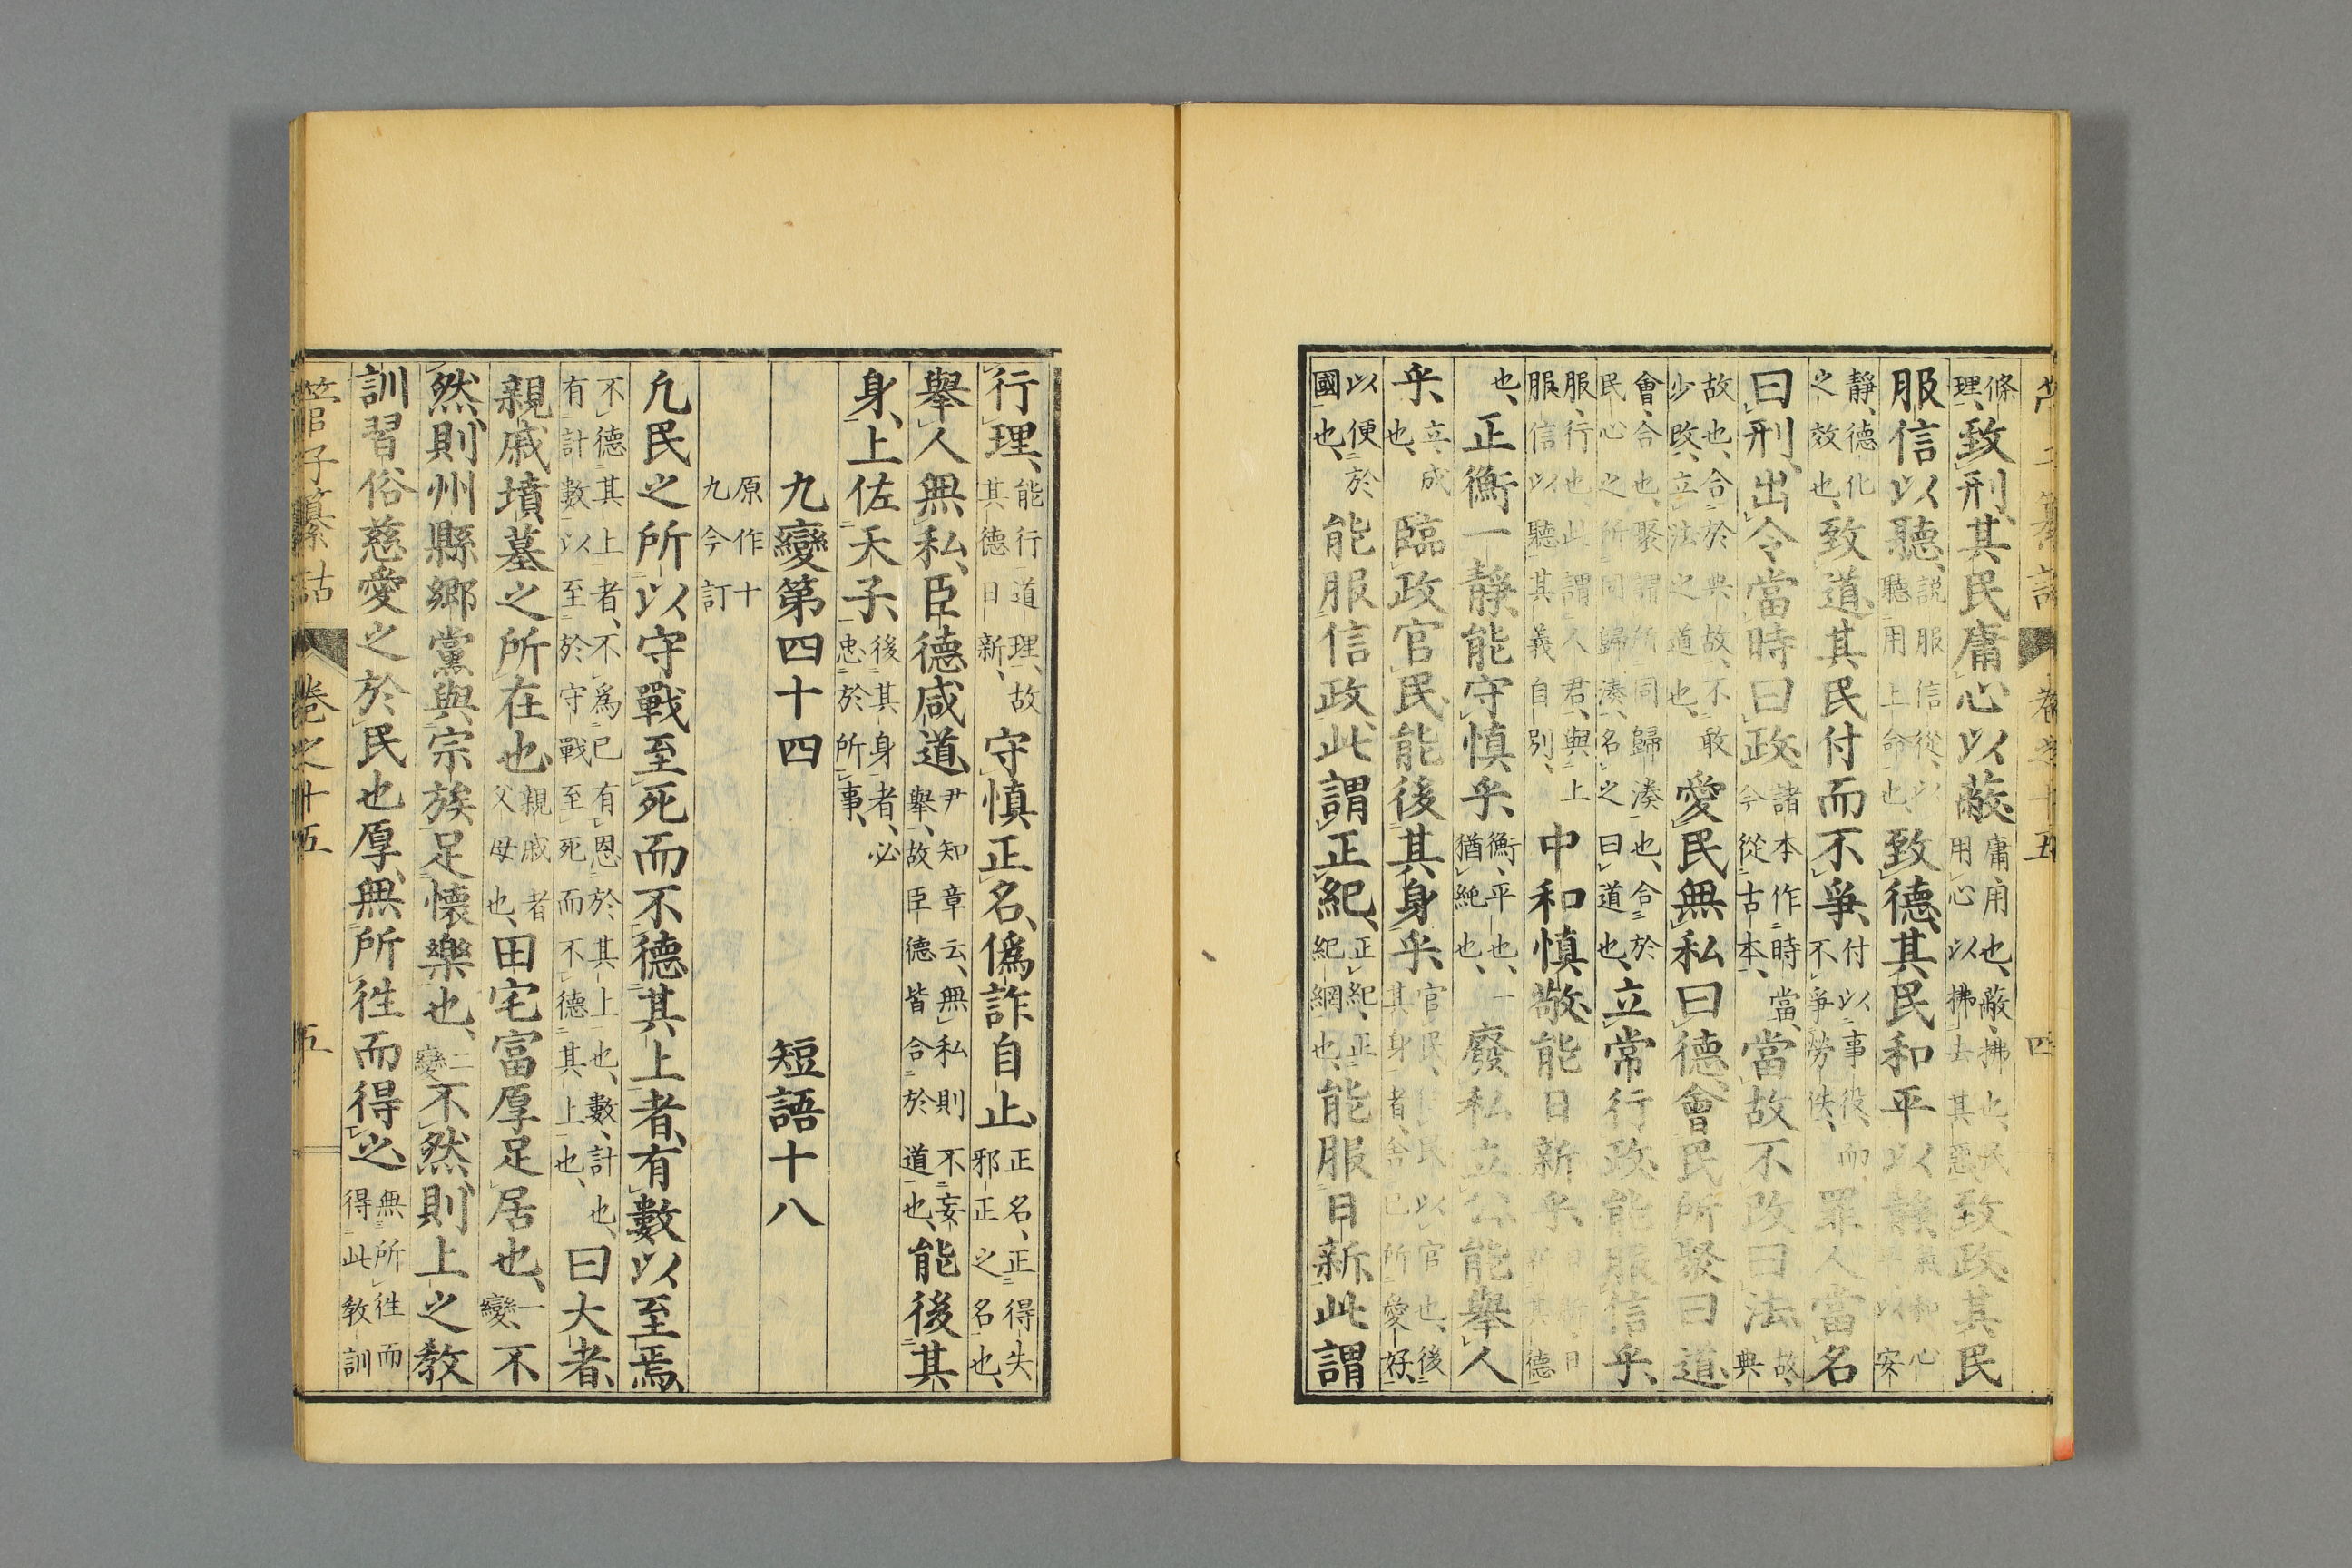 條理、致刑、其民庸心以蔽、庸用也、蔽、拂也、民用心以拂去其惡、致政其民
服信以聽、説服信從、以聽用上命也、致德、其民和平以靜、氣和心安
靜、德化之效也、致道、其民付而不爭、付以事役、而不爭勞佚、罪人當名
曰刑、出令當時曰政、諸本作時當、今從古本、當故不改曰法、故、典
故也、合於典故、不敢少改、立法之道也、愛民無私曰德、會民所聚曰道、
會、合也、聚謂所同歸湊也、合於民心之所同歸湊、名之曰道也、立常行政、能服信乎、
服、行也、此謂人君、與上服信以聽其義自別、中和慎敬能日新乎、日新、日新其德
也、正衡一靜、能守慎乎、衡、平也、一猶純也、廢私立公、能舉人
乎、立、成也、臨政官民、能後其身乎、官民、民以官也、後其身者、舍己所愛好
以便於國也、能服信政、此謂正紀、正紀、正紀綱也、能服日新、此謂
管子纂詁 卷之十五 四
行理、能行道理、故其德日新、守慎正名、僞詐自止、正名、正得失邪正之名也、
舉人無私、臣德咸道、尹知章云、無私則不妄舉、故臣德皆合於道也、能後其
身、上佐天子、後其身者、必忠於所事、
九變第四十四 短語十八
原作十九今訂
凡民之所以守戰至死而不德其上者、有數以至焉、
不德其上者、不爲己有有恩於其上也、數、計也、有計數以至於守戰至死而不德其上也、曰大者、
親戚墳墓之所在也、親戚者父母也、田宅富厚足居也、一變、不
然、則州縣鄉黨與宗族足懷樂也、二變、不然、則上之教
訓習俗慈愛之於民也厚、無所徃而得之、無所徃而得此敎訓
管子纂詁 卷之十五 五